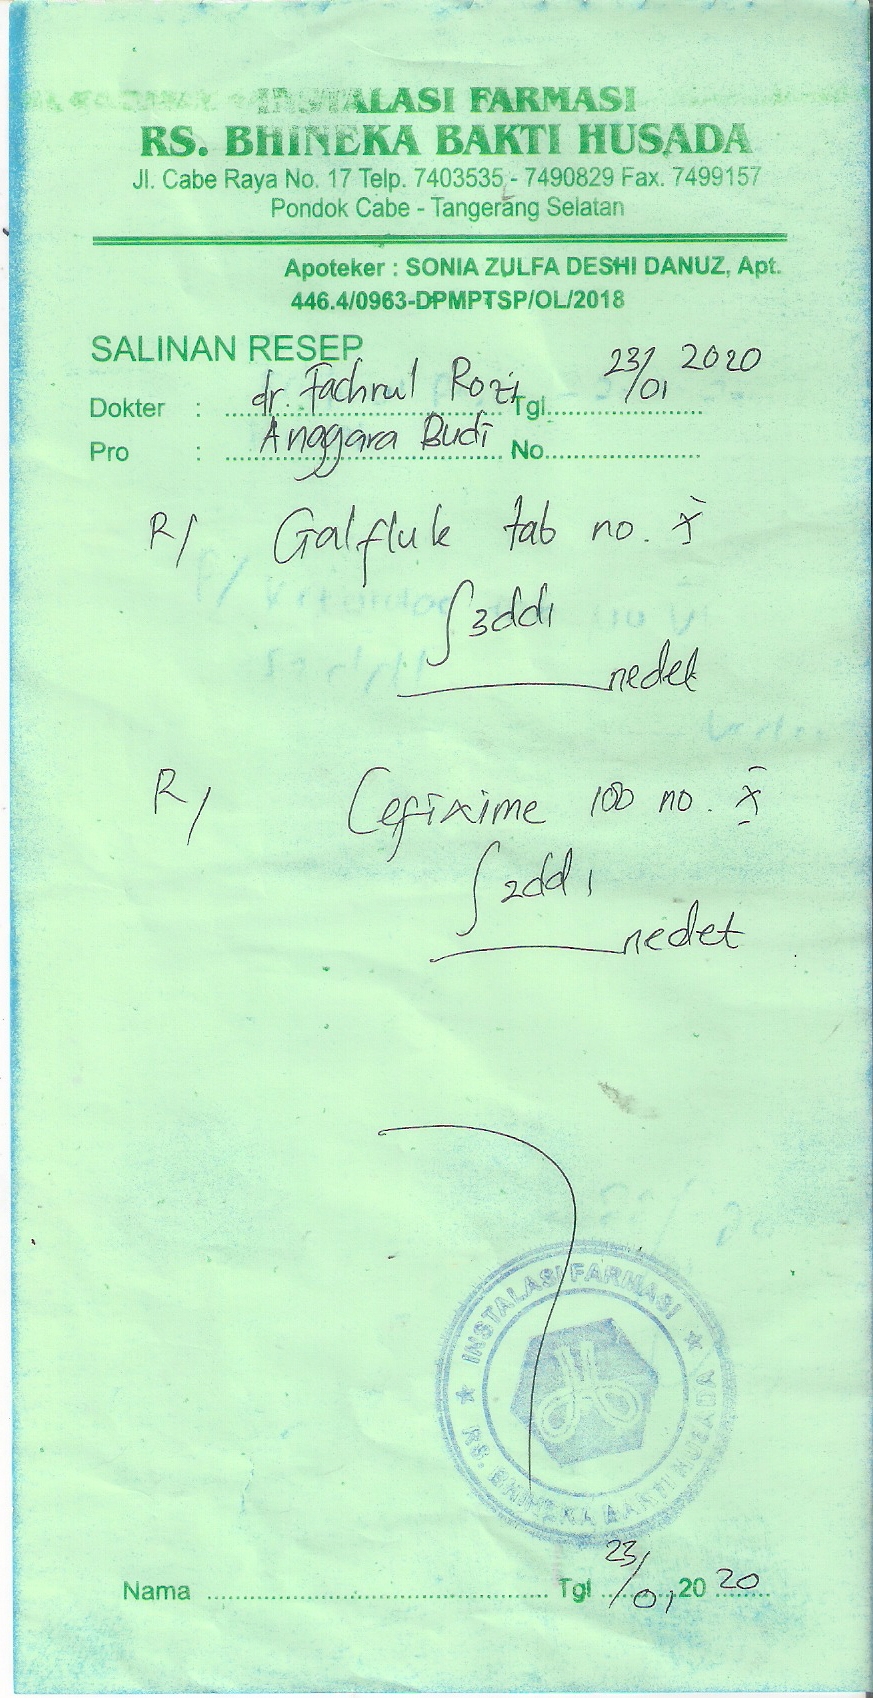 INSTALASI FARMASI
RS. BHINEKA BAKTI HUSADA
Jl. Cabe Raya No. 17 Telp. 7403535 - 7490829 Fax. 7499157
Pondok Cabe - Tangerang Selatan
Apoteker : SONIA ZULFA DESHI DANUZ, Apt.
446.4/0963-DPMPTSP/OL/2018
SALINAN RESEP
Dokter : dr. Fachrul Rozi Tgl. 23/01 2020
Pro : Anggara Budi No.
R/ Galfluk tab no. X
ʃ 3dd1
nedet
R/ Cefixime 100 no. X
ʃ 2dd1
nedet
INSTALASI FARMASI
RS. BHINEKA BAKTI HUSADA
Nama Tgl 23/01 2020